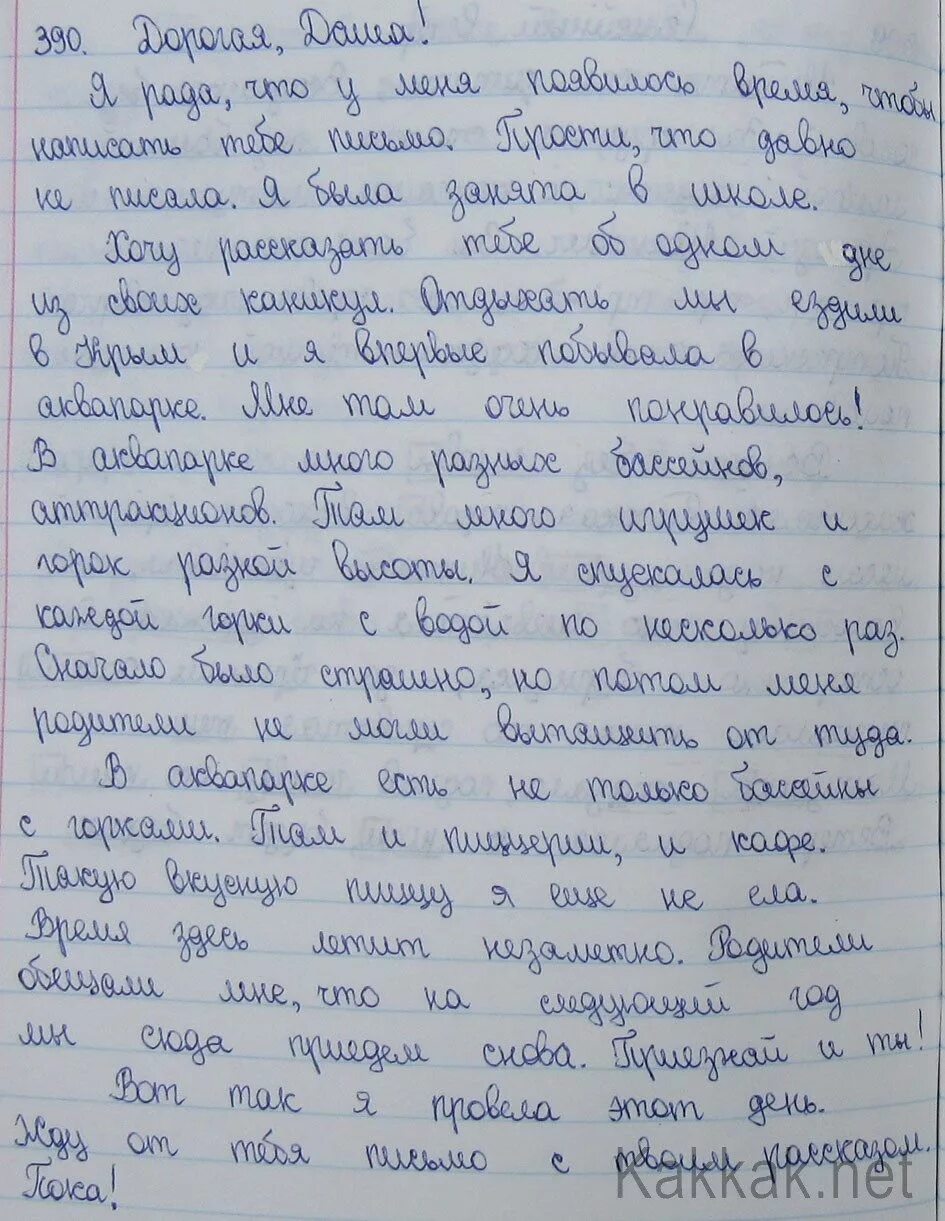 390. Дорогая, Даша!
Я рада, что у меня появилось время, чтобы
написать тебе письмо. Прости, что давно
не писала. Я была занята в школе.
Хочу рассказать тебе об одном дне
из своих каникул. Отдыхать мы ездили
в Крым и я впервые побывала в
аквапарке. Мне там очень понравилось!
В аквапарке много разных бассейнов,
аттракционов. Там много игрушек и
горок разной высоты. Я спускалась с
каждой горки с водой по несколько раз.
Сначало было страшно, но потом меня
родители не могли вытащить от туда.
В аквапарке есть не только бассейны
с горками. Там и пиццерии, и кафе.
Такую вкусную пиццу я еще не ела.
Время здесь летит незаметно. Родители
обещали мне, что на следующий год
мы сюда приедем снова. Приезжай и ты!
Вот так я провела этот день.
Жду от тебя письмо с твоим рассказом.
Пока!
Kakkak.net